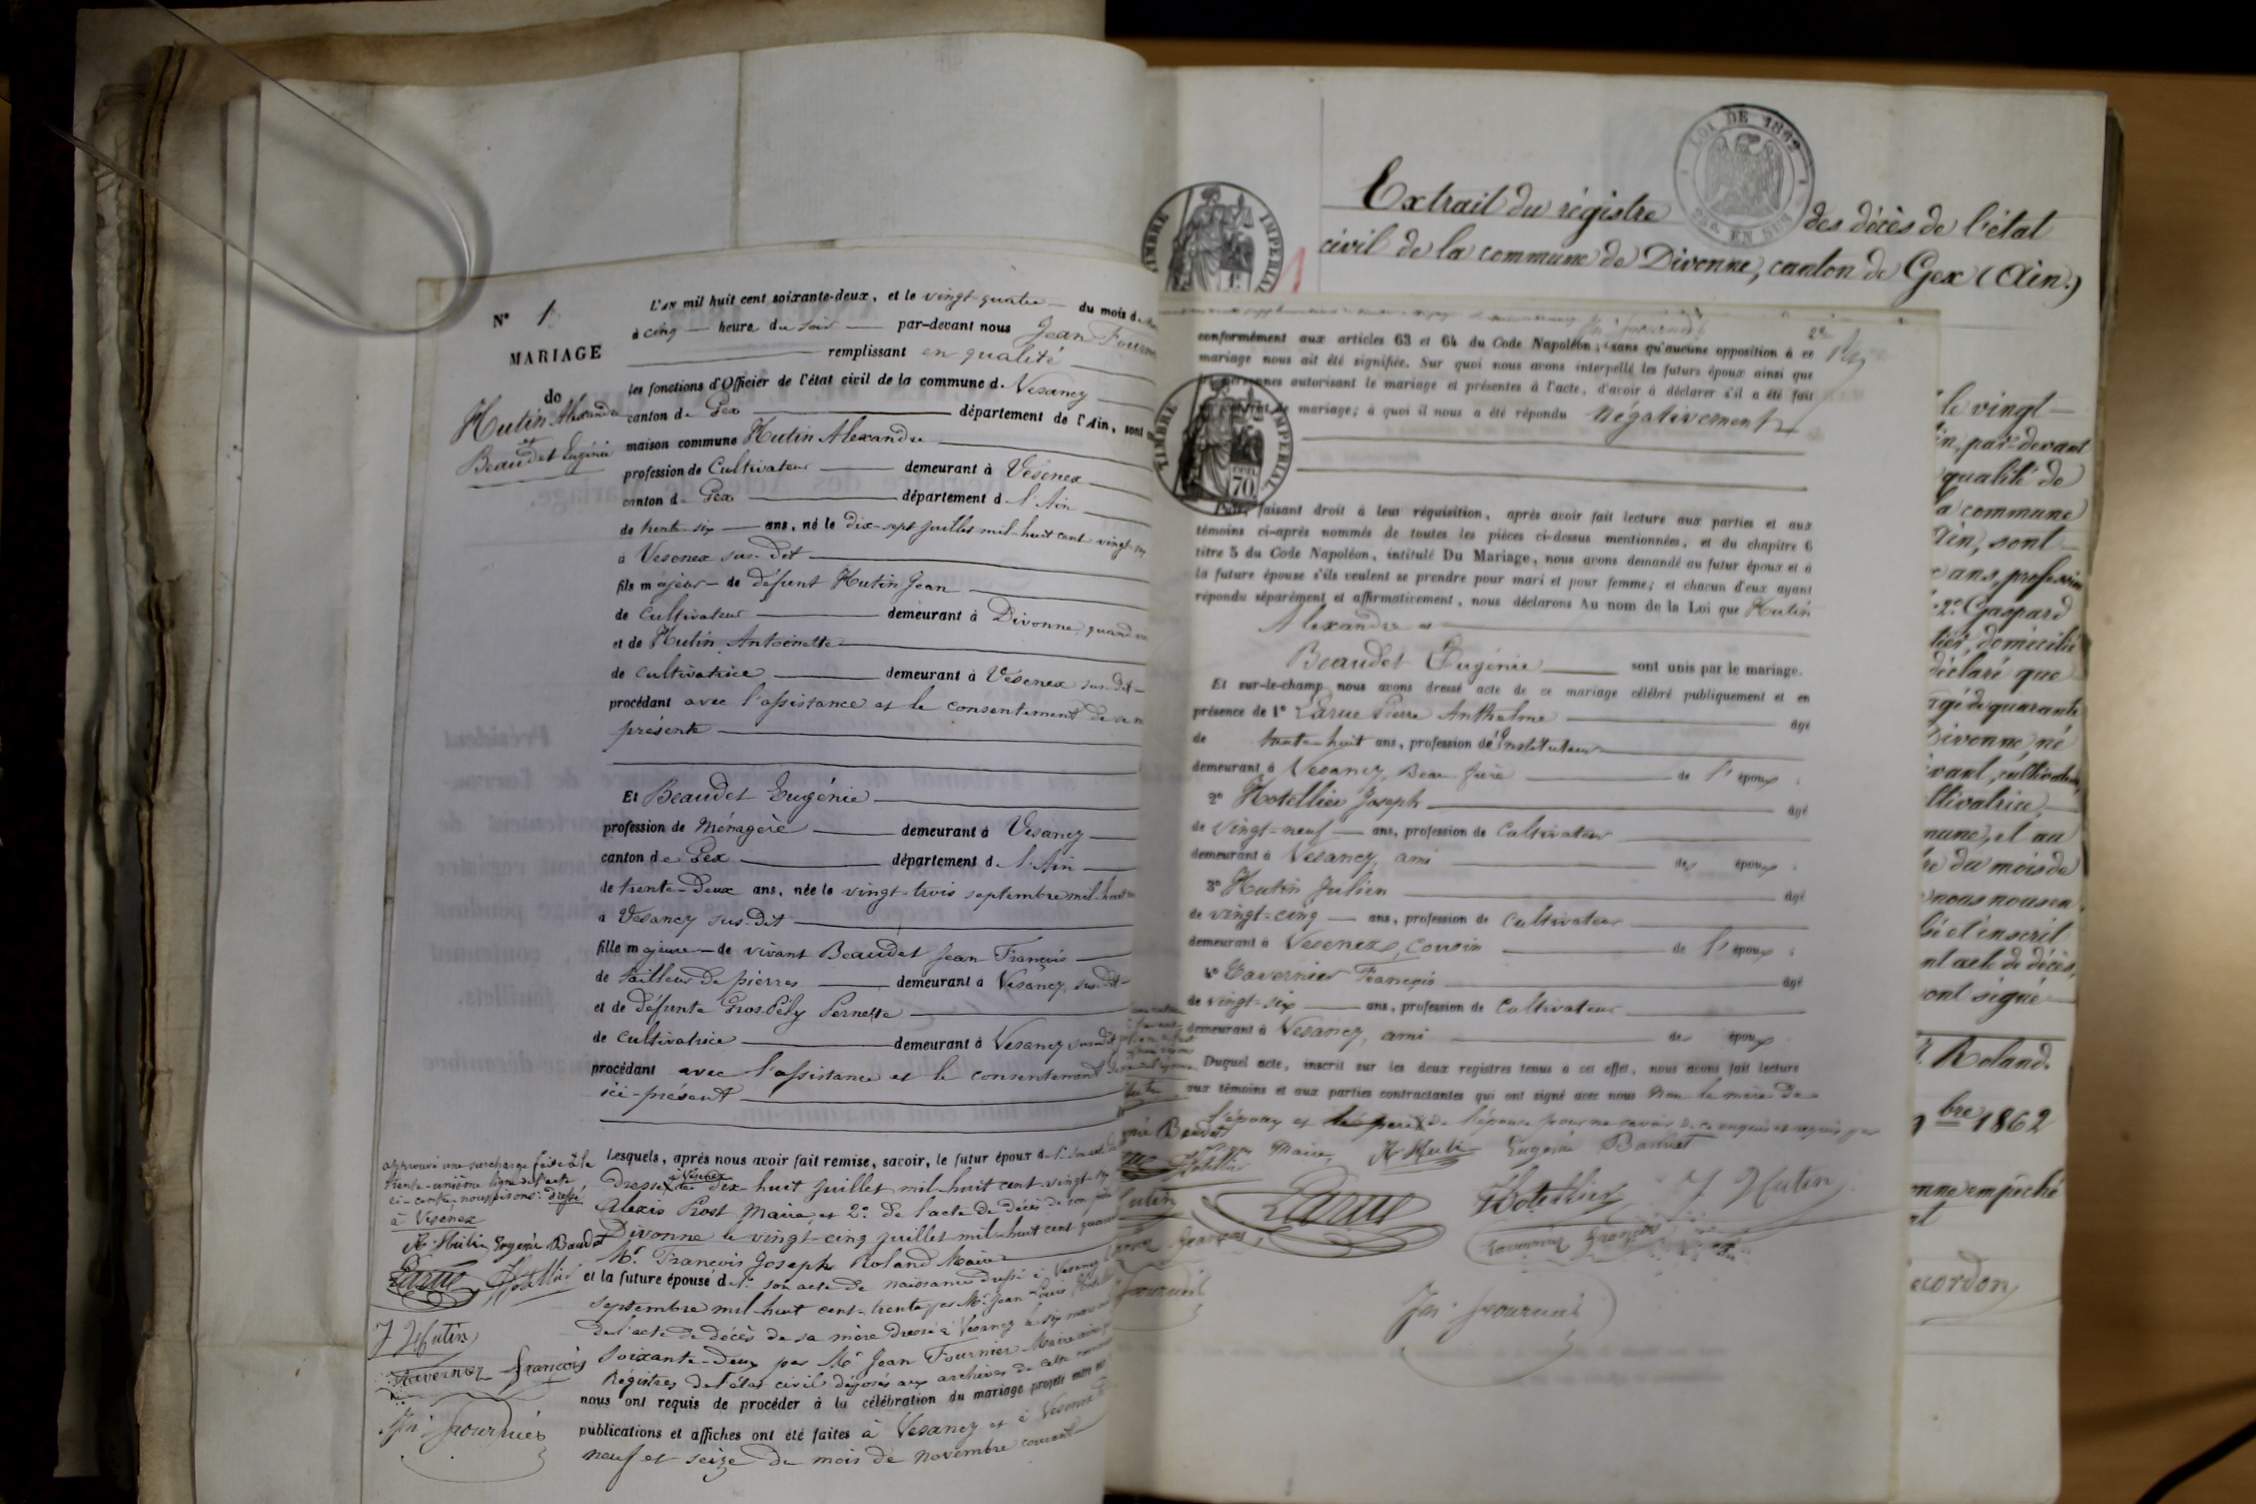 N° 1
MARIAGE
de
Hutin Alexandre
et
Beaudet Eugénie
L'AN mil huit cent soixante-deux, et le vingt-quatre du mois d
à cinq heure du soir par-devant nous Jean Fourn
remplissant en qualité
les fonctions d'Officier de l'état civil de la commune d. Vesancy
canton de Gex département de l'Ain, sont
maison commune Hutin Alexandre
profession de Cultivateur demeurant à Vésenex
canton de Gex département d. l'Ain
de trente-six ans, né le dix-sept juillet mil-huit cent vingt-six
à Vesenex sus-dit
fils majeur de défunt Hutin Jean
de cultivateur demeurant à Divonne quand
et de Hutin Antoinette
de cultivatrice demeurant à Vésenex sus-dit
procédant avec l'assistance et le consentement de sa m
présente
Et Beaudet Eugénie
profession de Ménagère demeurant à Vesancy
canton de Gex département d. l'Ain
de trente-deux ans, née le vingt-trois septembre mil-huit
à Vesancy sus-dit
fille majeure de vivant Beaudet Jean François
de tailleur de pierres demeurant à Vesancy, sus-dit
et de défunte Grospély Pernette
de cultivatrice demeurant à Vesancy sus-dit
procédant avec l'assistance et le consentement
ici-présent
Lesquels, après nous avoir fait remise, savoir, le futur époux d. 1°
dressé à Vésenex le dix-huit juillet mil-huit cent-vingt-six
Alexis Prost Maire, et 2° de l'acte de décès de son père
Divonne le vingt-cinq juillet mil-huit cent quarante
Mr. François Joseph Roland Maire
et la future épouse d. 1° son acte de naissance dressé à Vesancy
septembre mil-huit cent-trente par Mr. Jean-Louis
de l'acte de décès de sa mère dressé à Vesancy le six mars
soixante-deux par Mr Jean Fournier Maire
Régistres de l'état civil déposés aux archives de cette commune
nous ont requis de procéder à la célébration du mariage projeté entre eux
publications et affiches ont été faites à Vesancy et à Vesenex
neuf et seize du mois de novembre courant
approuvé une surcharge faite à la
trente-unième ligne de l'acte
ci-contre, nous disons: dressé
à Vésenex
A. Hutin Eugénie Baudet
Larue Hotellier
J Hutin
Tavernier françois
Jn. Fournier
TIMBRE IMPERIAL
LOI DE 1862
2/10 EN SUS
Extrait du régistre des décès de l'état
civil de la commune de Divonne, canton de Gex (Ain.)
conformément aux articles 63 et 64 du Code Napoléon; sans qu'aucune opposition à ce
mariage nous ait été signifiée. Sur quoi nous avons interpellé les futurs époux ainsi que
personnes autorisant le mariage et présentes à l'acte, d'avoir à déclarer s'il a été fait
de mariage; à quoi il nous a été répondu négativement
TIMBRE IMPERIAL
70
faisant droit à leur réquisition, après avoir fait lecture aux parties et aux
témoins ci-après nommés de toutes les pièces ci-dessus mentionnées, et du chapitre 6
titre 5 du Code Napoléon, intitulé Du Mariage, nous avons demandé au futur époux et à
la future épouse s'ils veulent se prendre pour mari et pour femme; et chacun d'eux ayant
répondu séparément et affirmativement, nous déclarons Au nom de la Loi que Hutin
Alexandre et
Beaudet Eugénie sont unis par le mariage.
Et sur-le-champ nous avons dressé acte de ce mariage célébré publiquement et en
présence de 1° Larue Pierre Anthelme âgé
de trente-huit ans, profession d'Instituteur
demeurant à Vesancy, Beau-frère de l'époux
2° Hotellier Joseph âgé
de vingt-neuf ans, profession de Cultivateur
demeurant à Vesancy, ami des époux
3° Hutin Julien âgé
de vingt-cinq ans, profession de Cultivateur
demeurant à Vesenex, cousin de l'époux
4° Tavernier François âgé
de vingt-six ans, profession de Cultivateur
demeurant à Vesancy, ami des époux
Duquel acte, inscrit sur les deux registres tenus à cet effet, nous avons fait lecture
aux témoins et aux parties contractantes qui ont signé avec nous non la mère de
l'époux et le père de l'épouse pour ne savoir de ce enquis et requis par
nous Maire, A. Hutin Eugénie Baudet
Larue Hotellier J Hutin
Tavernier françois
Jn. Fournier
le vingt
in, par-devant
qualité de
la commune
Ain, sont
ans, profession
2° Gaspard
domicilié
déclaré que
âgé de quarante
Divonne né
vivant, cultivateur
cultivatrice
et au
du mois de
nous nous
et inscrit
acte de décès,
ont signé
Roland.
bre 1862
empêché
ecordon